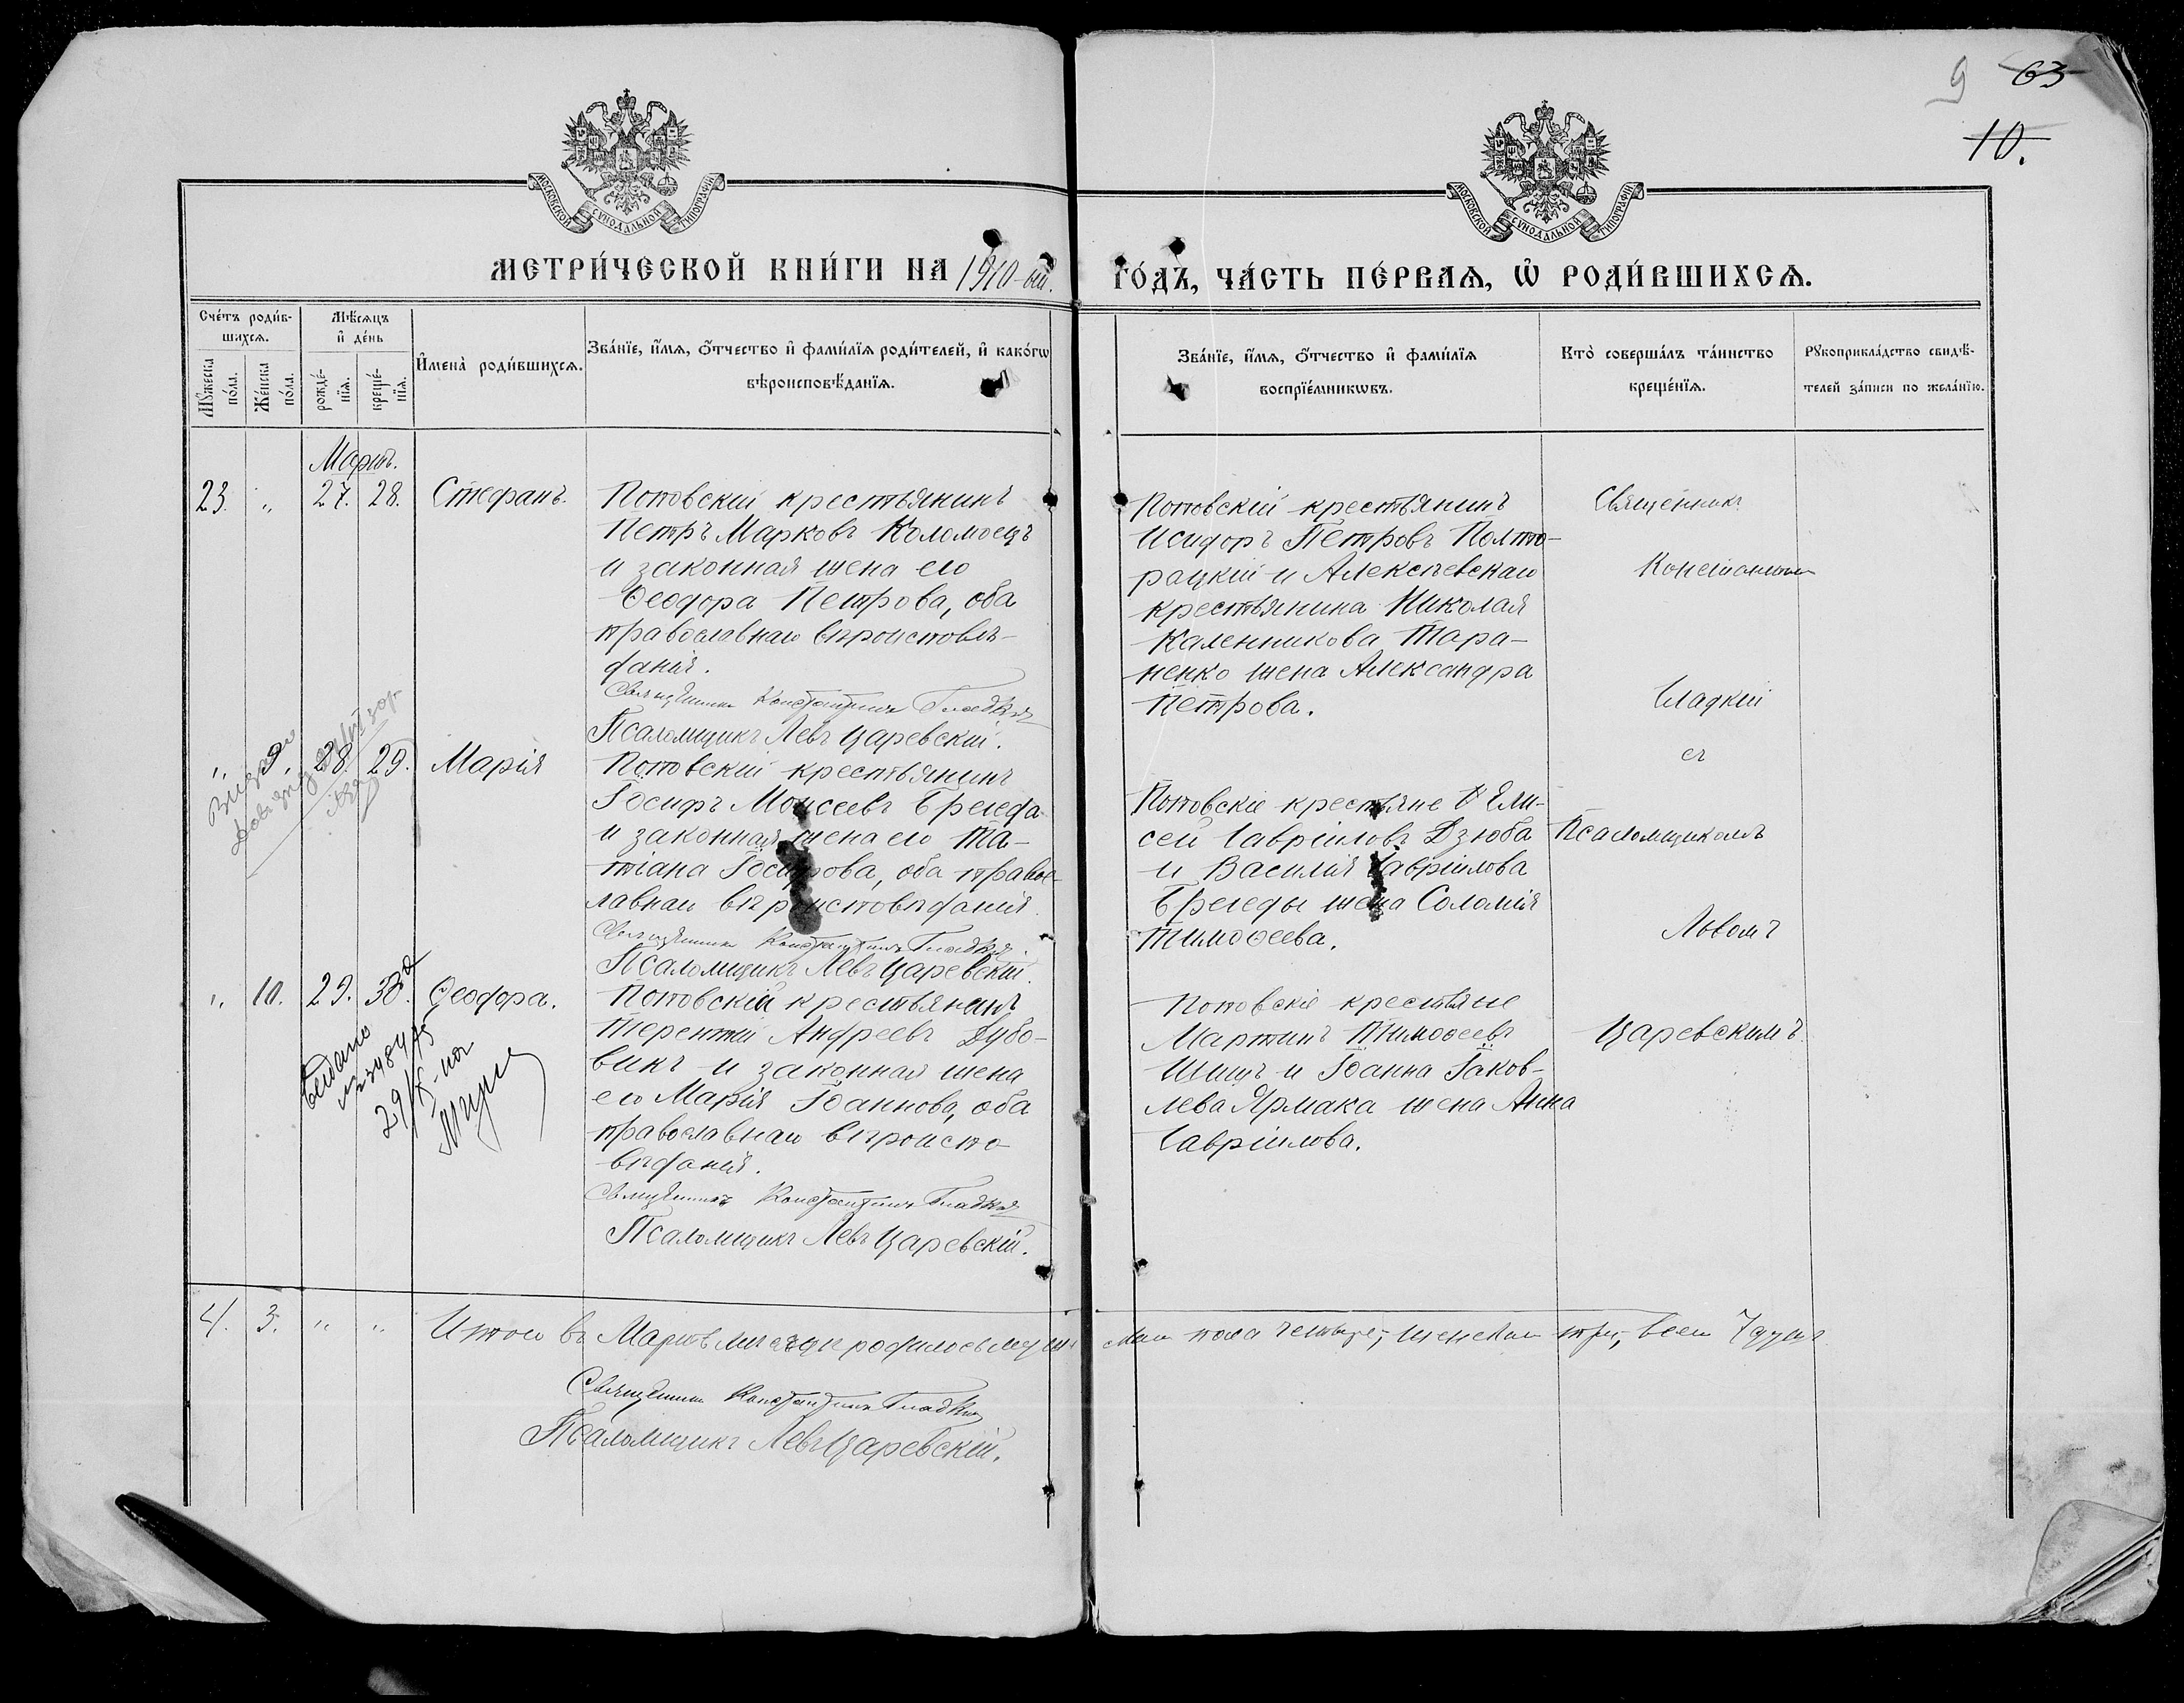 9 63
10.
МОСКОВСКОЙ СУНОДАЛЬНОЙ ТИПОГРАФІИ
МОСКОВСКОЙ СУНОДАЛЬНОЙ ТИПОГРАФІИ
МЕТРИ́ЧЕСКОЙ КНИ́ГИ НА 1910-ый.
ГО́ДЪ, ЧА́СТЬ ПЕ́РВАѦ, Ѡ҆ РОДИ́ВШИХСѦ.
Сче́тъ роди́в-
шихсѧ.
Мꙋ́жеска
по́ла.
Же́нска
по́ла.
Мѣ́сѧцъ
и҆ де́нь
рожде́-
нїѧ.
креще́-
нїѧ.
И҆мена̀ роди́вшихсѧ.
Зва́нїе, и҆́мѧ, ѻ҆́тчество и҆ фами́лїѧ роди́телей, и҆ како́гѡ
вѣроисповѣ́данїѧ.
Зва́нїе, и҆́мѧ, ѻ҆́тчество и҆ фами́лїѧ
воспрїе́мникѡвъ.
Кто̀ соверша́лъ та́инство
креще́нїѧ.
Рꙋкоприкла́дство свидѣ́-
телей за́писи по жела́нїю.
Мартъ.
23. „ 27. 28. Стефанъ.
Поповскій крестьянинъ
Петръ Марковъ Коломоецъ
и законная жена его
Ѳеодора Петрова, оба
православнаго вѣроисповѣ-
данія.
Священникъ Константинъ Гладкій
Псаломщикъ Левъ Царевскій.
Поповскій крестьянинъ
Исидоръ Петровъ Полто-
рацкій и Алексѣевскаго
крестьянина Николая
Каленникова Тара-
ненко жена Александра
Петрова.
Священникъ
Константинъ
Гладкій
съ
Псаломщикомъ
Львомъ
Царевскимъ
„ 9. 28. 29. Марія
Поповскій крестьянинъ
Іосифъ Моисеевъ Брегеда
и законная жена его Та-
тіана Іосифова, оба правос-
лавнаго вѣроисповѣданія.
Священникъ Константинъ Гладкій
Псаломщикъ Левъ Царевскій.
Поповскіе крестьяне Ели-
сей Гавріиловъ Дзюба
и Василія Гавріилова
Брегеды жена Соломія
Тимоѳеева.
„ 10. 29. 30. Ѳеодора.
Поповскій крестьянинъ
Терентій Андреевъ Дубо-
викъ и законная жена
его Марія Іоаннова, оба
православнаго вѣроиспо-
вѣданія.
Священникъ Константинъ Гладкій
Псаломщикъ Левъ Царевскій.
Поповскіе крестьяне
Мартинъ Тимоѳеевъ
Шищъ и Іоанна Іаков-
лева Ярмака жена Анна
Гавріилова.
4. 3. „ „ Итого въ Мартѣ мѣсяцѣ родилось муже-
скаго пола четыре, женскаго три, всего 7 душъ
Священникъ Константинъ Гладкій
Псаломщикъ Левъ Царевскій.